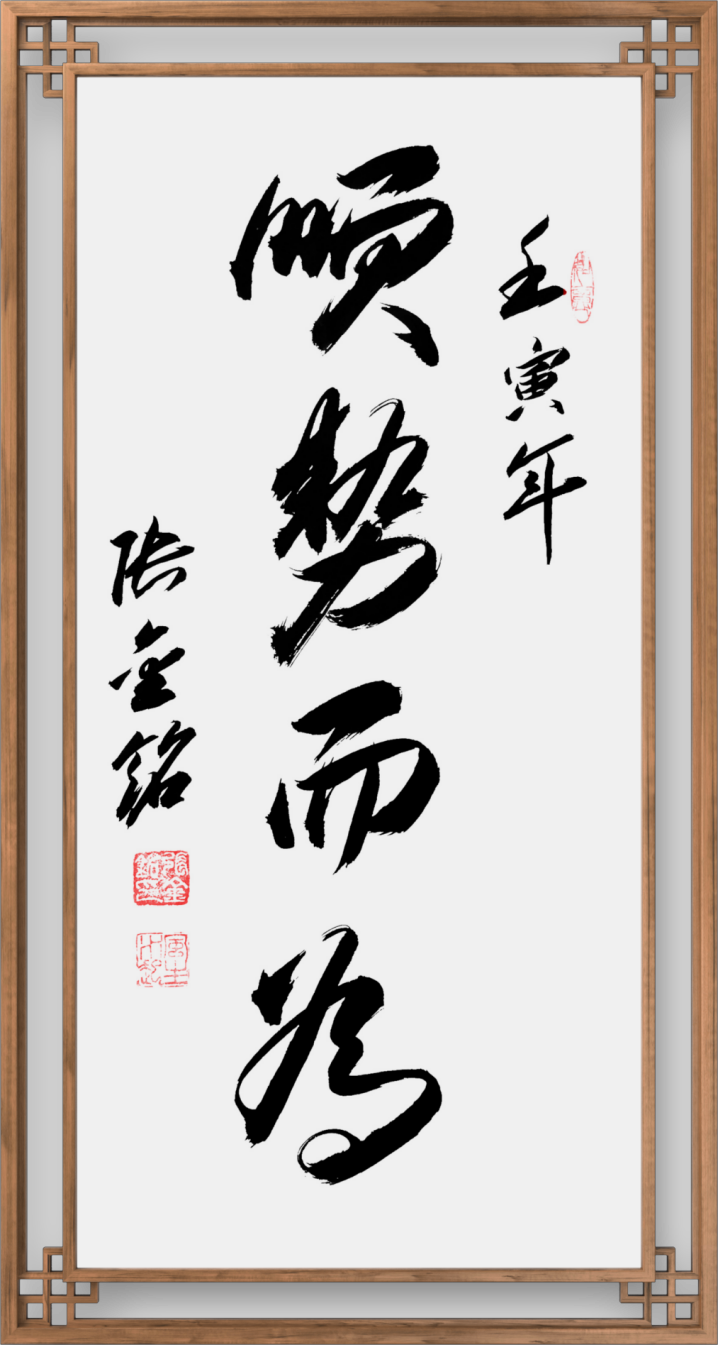 壬寅年
順勢而為
張金銘
張金銘印